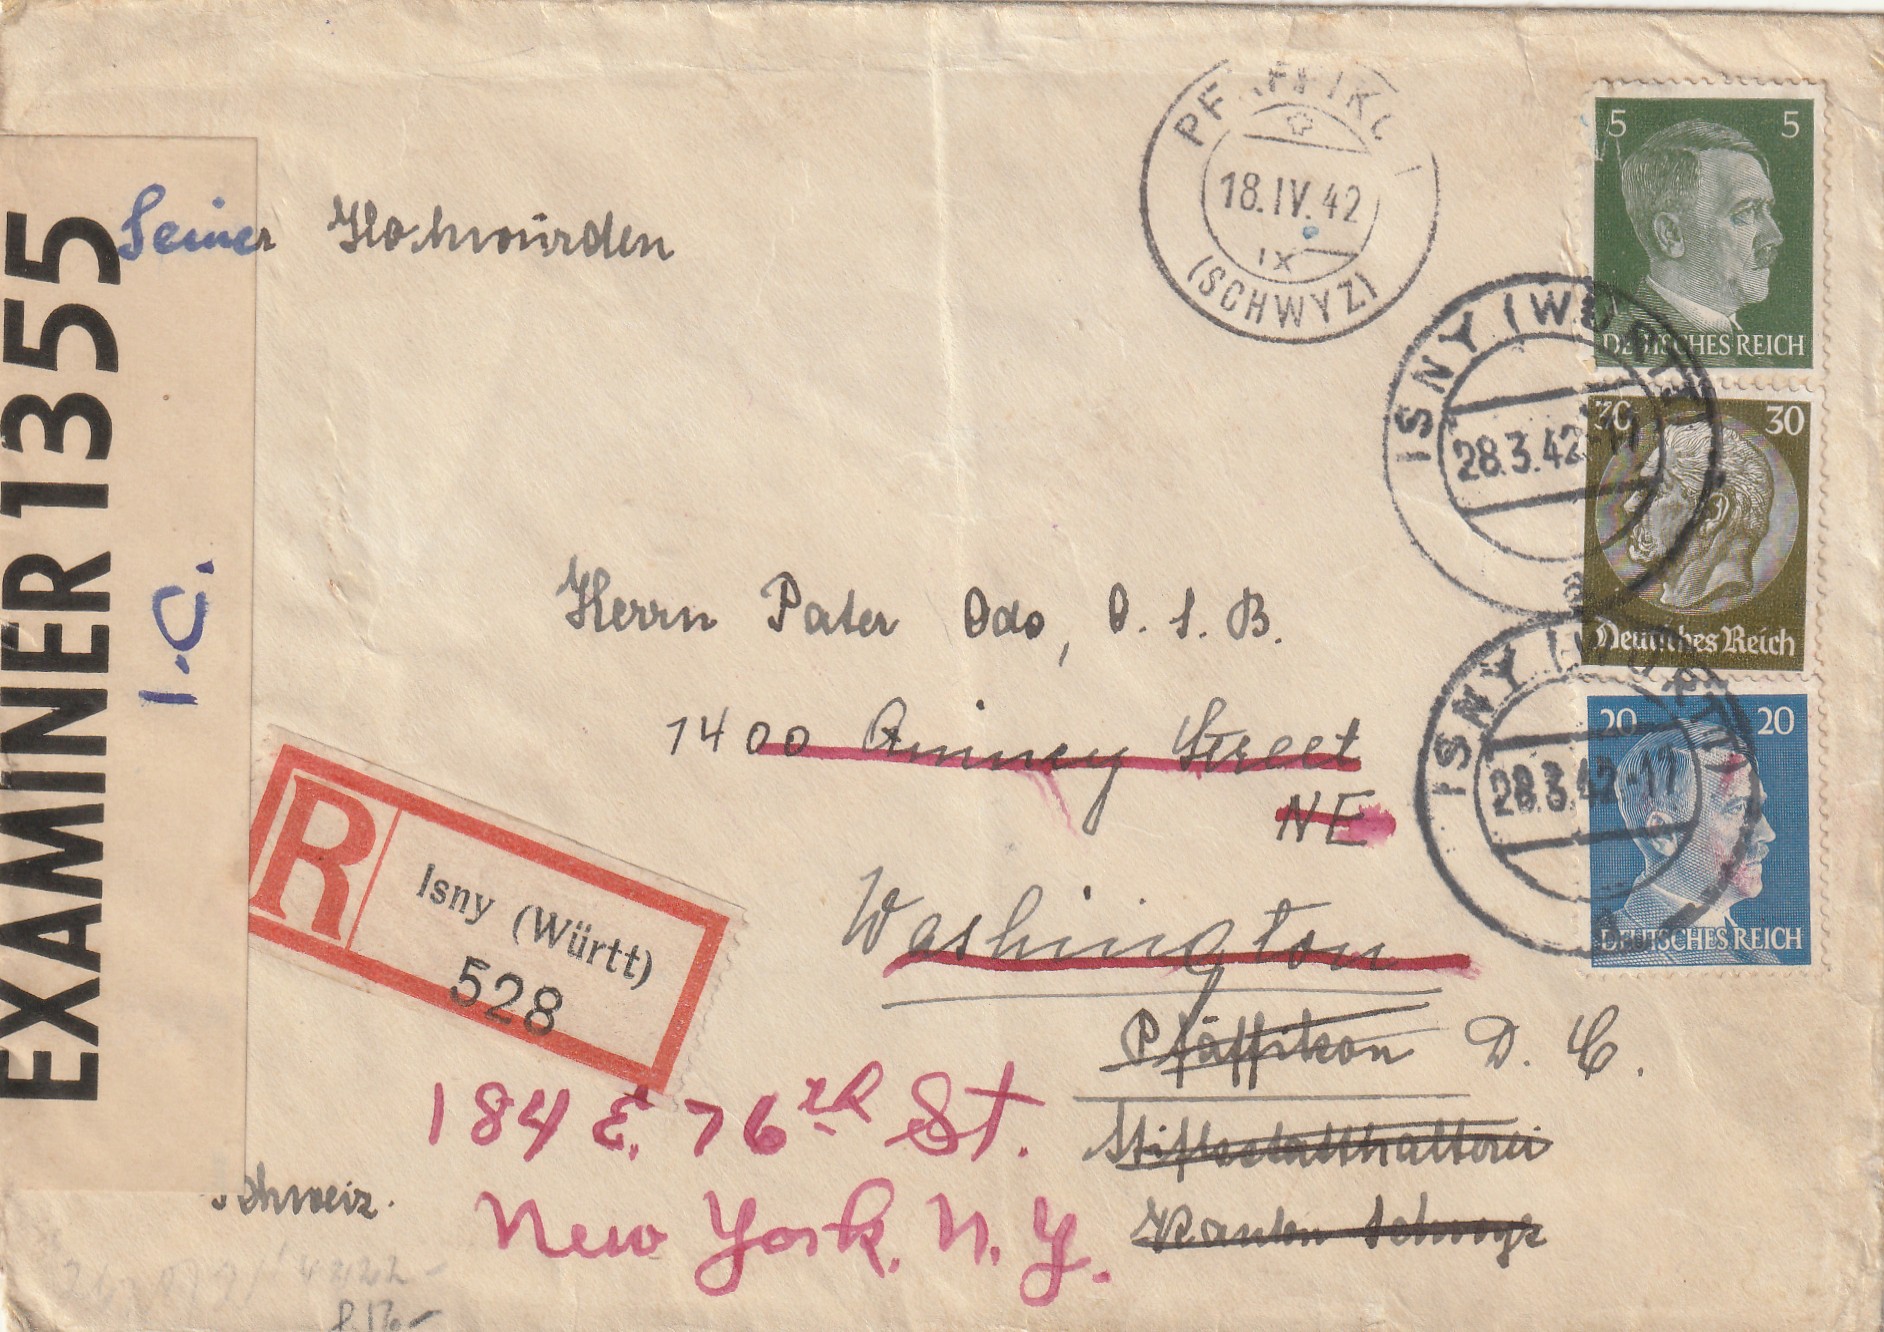 EXAMINER 1355
I.C.
Seiner Hohwürden
PFÄFFIKON
18.IV.42
IX
(SCHWYZ)
5 5
DEUTSCHES REICH
ISNY (WÜRTT)
28.3.42-11
a
30 30
Deutsches Reich
Herrn Pater Odo, O. S. B.
1400 Quincy Street
NE
Washington
D. C.
ISNY (WÜRTT)
28.3.42-11
a
20 20
DEUTSCHES REICH
R
Isny (Württ)
528
Pfäffikon
Stiftsstatthalterei
Kanton Schwyz
184 E. 76rd St.
New York. N. Y.
Schweiz.